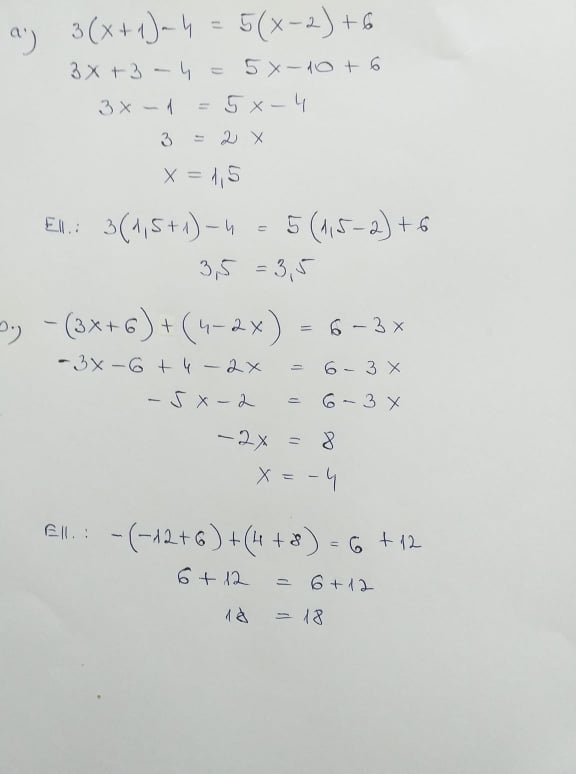 a.) 3(x+1)-4 = 5(x-2)+6
3x+3-4 = 5x-10+6
3x-1 = 5x-4
3 = 2x
x = 1,5
Ell.: 3(1,5+1)-4 = 5(1,5-2)+6
3,5 = 3,5
b.) -(3x+6)+(4-2x) = 6-3x
-3x-6+4-2x = 6-3x
-5x-2 = 6-3x
-2x = 8
x = -4
Ell.: -(-12+6)+(4+8) = 6+12
6+12 = 6+12
18 = 18